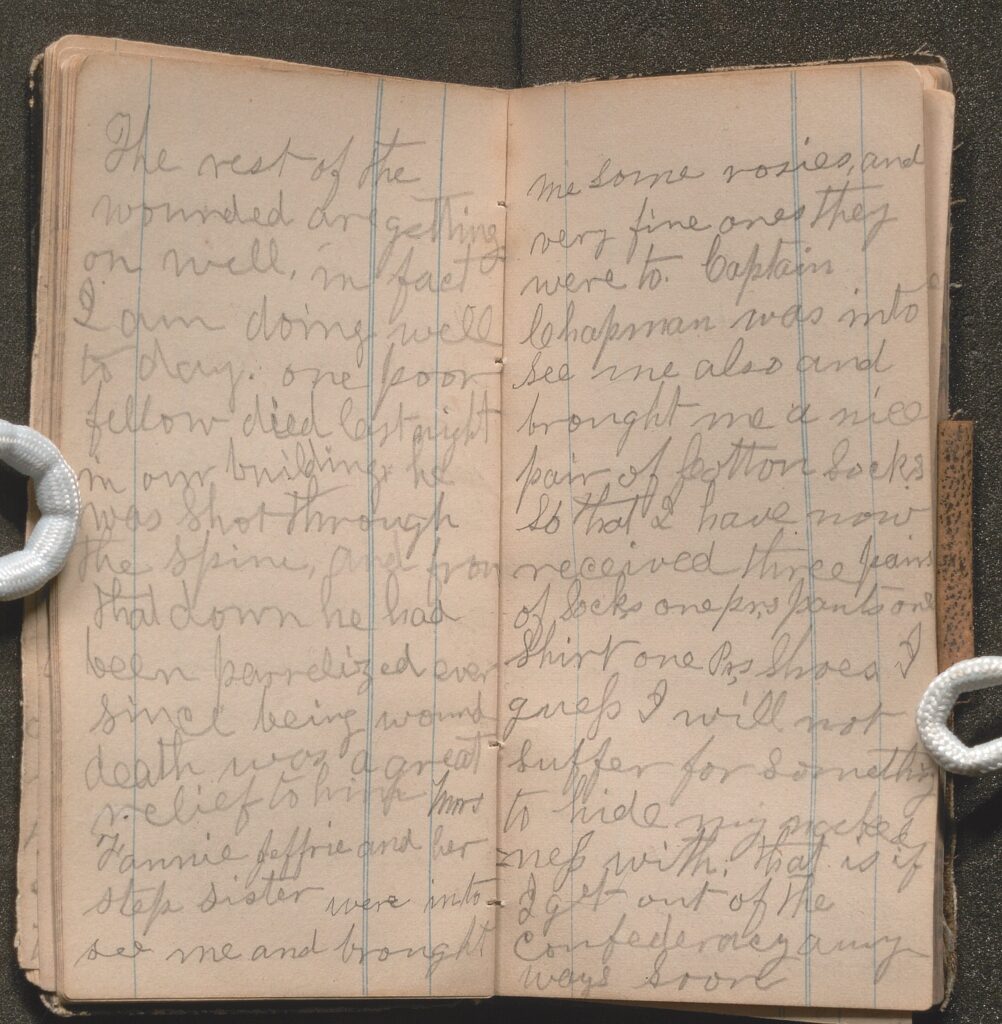 The rest of the
wounded are getting
on well, in fact
I am doing well
to day. one poor
fellow died last night
in our building he
was Shot through
the Spine, and from
that down he had
been parrelized ever
since being wound
death was a great
relief to him Mrs
Fannie Jeffrie and her
step sister were into
see me and brought
me some rosies, and
very fine ones they
were to. Captain
Chapman was into
see me also and
brought me a nice
pair of Cotton Socks
So that I have now
received three pairs
of Socks one prs pants one
Shirt one Prs Shoes I
guess I will not
suffer for something
to hide my
ness with, that is if
I get out of the
Confederacy anny
ways soon